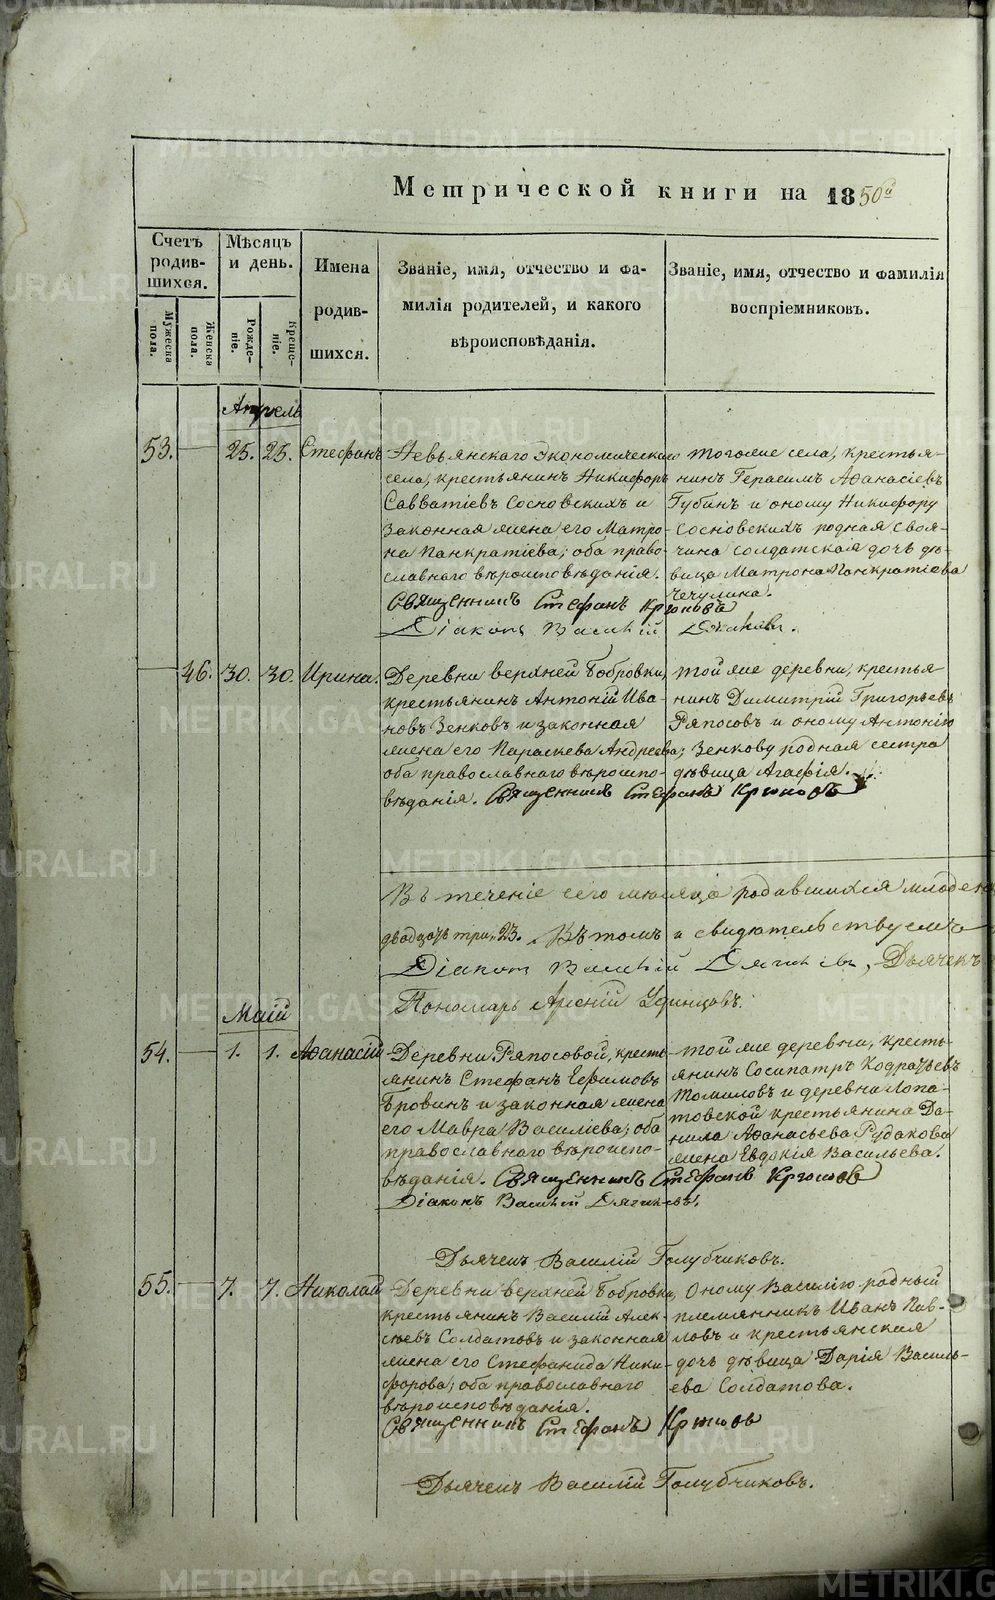 Метрической книги на 1850й
Счетъ родив-шихся.
Мѣсяцъ и день.
Имена родив-шихся.
Званіе, имя, отчество и фа-
милія родителей, и какого
вѣроисповѣданія.
Званіе, имя, отчество и фамилія
воспріемниковъ.
Мужеска пола.
Женска пола.
Рожде-ніе.
Креще-ніе.
Апрель
53. 25. 25. Стефанъ
Невьянскаго Экономическаго
села, крестьянинъ Никифоръ
Савватіевъ Сосновскихъ и
Законная жена его Матро-
на Панкратіева; оба право-
славнаго вѣроисповѣданія.
Священникъ Стефанъ Крюковъ
Діаконъ Василій
тогоже села, крестья-
нинъ Герасимъ Аѳанасіевъ
Губинъ и оному Никифору
Сосновскихъ родная своя-
чина солдатская дочь дѣ-
вица Матрона Панкратіева
Чечулина.
46. 30. 30. Ирина.
Деревни верхней Бобровки,
крестьянинъ Антоній Ива-
новъ Зенковъ и законная
жена его Параскева Андреева;
оба православнаго вѣроиспо-
вѣданія. Священникъ Стефанъ Крюковъ
той же деревни, крестья-
нинъ Димитрій Григорьевъ
Ряпосовъ и оному Антонію
Зенкову родная сестра
дѣвица Агафія.
Въ теченіе сего мѣсяца родившихся младен
двадцать три, 23. Въ томъ и свидѣтельствуемъ
Діаконъ Василій Дьячекъ
Пономарь Арсеній Удинцовъ.
Маій
54. 1. 1. Аѳанасій
Деревни Ряпосовой, кресть-
янинъ Стефанъ Ефимовъ
Бровинъ и законная жена
его Мавра Василіева; оба
православнаго вѣроиспо-
вѣданія. Священникъ Стефанъ Крюковъ
Діаконъ Василій
той же деревни, кресть-
янинъ Сосипатръ Кодратьевъ
Томиловъ и деревни Лопа-
товской крестьянина Да-
нила Аѳанасьева Рудакова
жена Евдокія Васильева.
Дьячекъ Василій Голубчиковъ.
55. 7. 7. Николай
Деревни верхней Бобровки,
крестьянинъ Василій Алек-
сѣевъ Солдатовъ и законная
жена его Стефанида Ники-
форова; оба православнаго
вѣроисповѣданія.
Священникъ Стефанъ Крюковъ
Оному Василію родный
племянникъ Иванъ Пав-
ловъ и крестьянская
дочь дѣвица Дарія Василь-
ева Солдатова.
Дьячекъ Василій Голубчиковъ.
METRIKI.GASO-URAL.RU